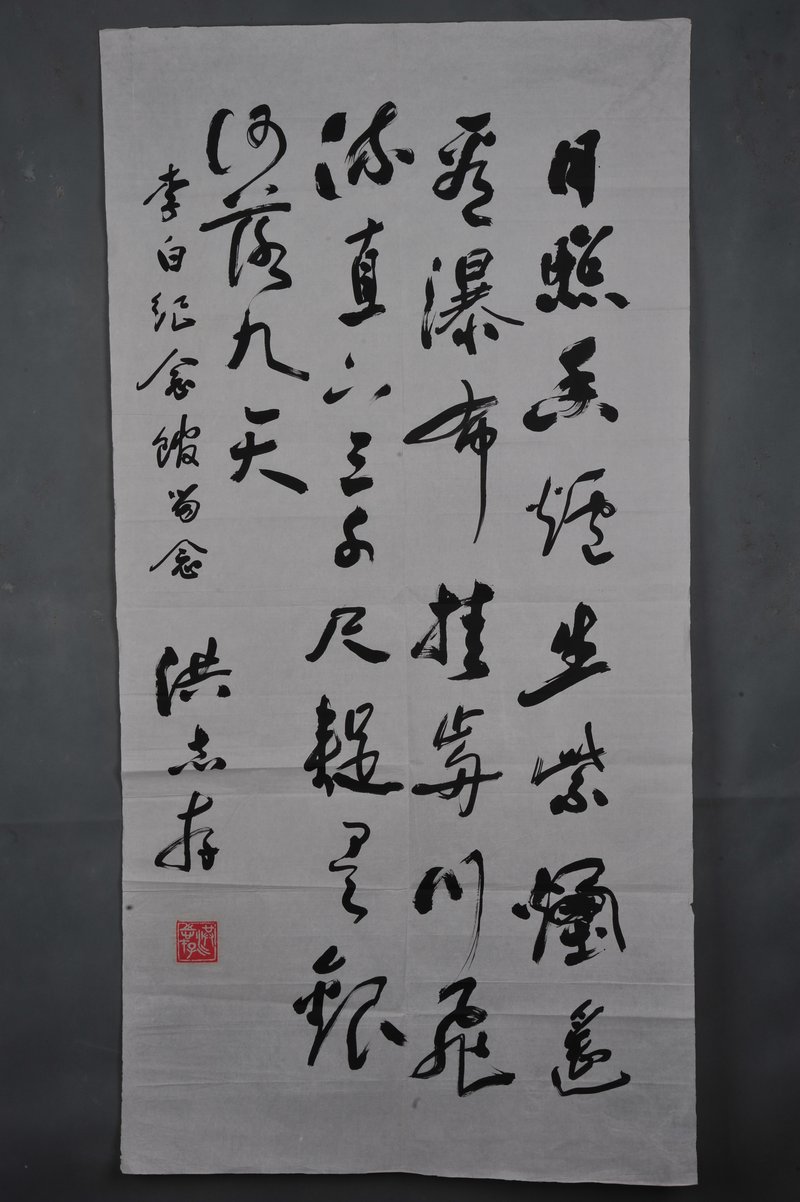 日照香爐生紫煙遙
看瀑布挂前川飛
流直下三千尺疑是銀
河落九天
李白紀念館留念 洪志存